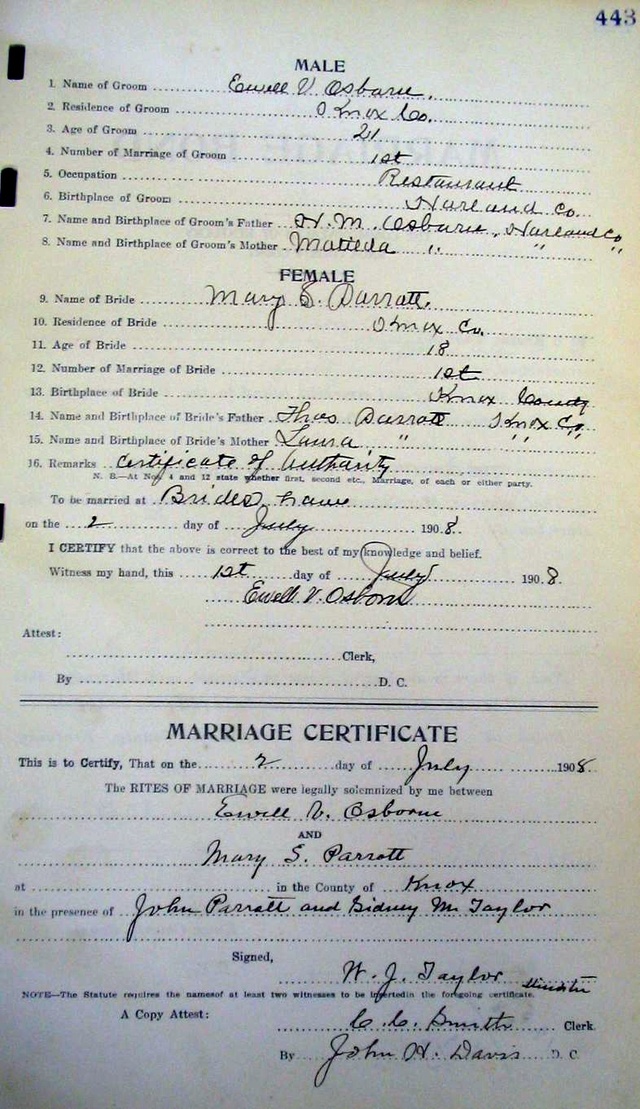 443
MALE
1. Name of Groom Ewell V Osborn.
2. Residence of Groom Knox Co.
3. Age of Groom 21
4. Number of Marriage of Groom 1st
5. Occupation Restaurant
6. Birthplace of Groom Harland Co.
7. Name and Birthplace of Groom's Father H. M. Osborn, Harland Co
8. Name and Birthplace of Groom's Mother " " "
FEMALE
9. Name of Bride Mary S. Parrott.
10. Residence of Bride Knox Co.
11. Age of Bride 18
12. Number of Marriage of Bride 1st
13. Birthplace of Bride Knox County
14. Name and Birthplace of Bride's Father Thos Parrott Knox Co,
15. Name and Birthplace of Bride's Mother Laura " " "
16. Remarks Certificate of Authority
N. B.—At Nos. 4 and 12 state whether first, second etc., Marriage, of each or either party.
To be married at Brides home
on the 2 day of July 1908
I CERTIFY that the above is correct to the best of my knowledge and belief.
Witness my hand, this 1st day of July 1908.
Ewell V. Osborn
Attest:
Clerk,
By D. C.
MARRIAGE CERTIFICATE
This is to Certify, That on the 2 day of July 1908
The RITES OF MARRIAGE were legally solemnized by me between
Ewell V. Osborne
AND
Mary S. Parrott
at in the County of Knox
in the presence of John Parratt and Sidney M Taylor
Signed,
W. J. Taylor Minister
NOTE—The Statute requires the namesof at least two witnesses to be insertedin the foregoing certificate.
A Copy Attest: C. C. Smith Clerk.
By John H. Davis D. C